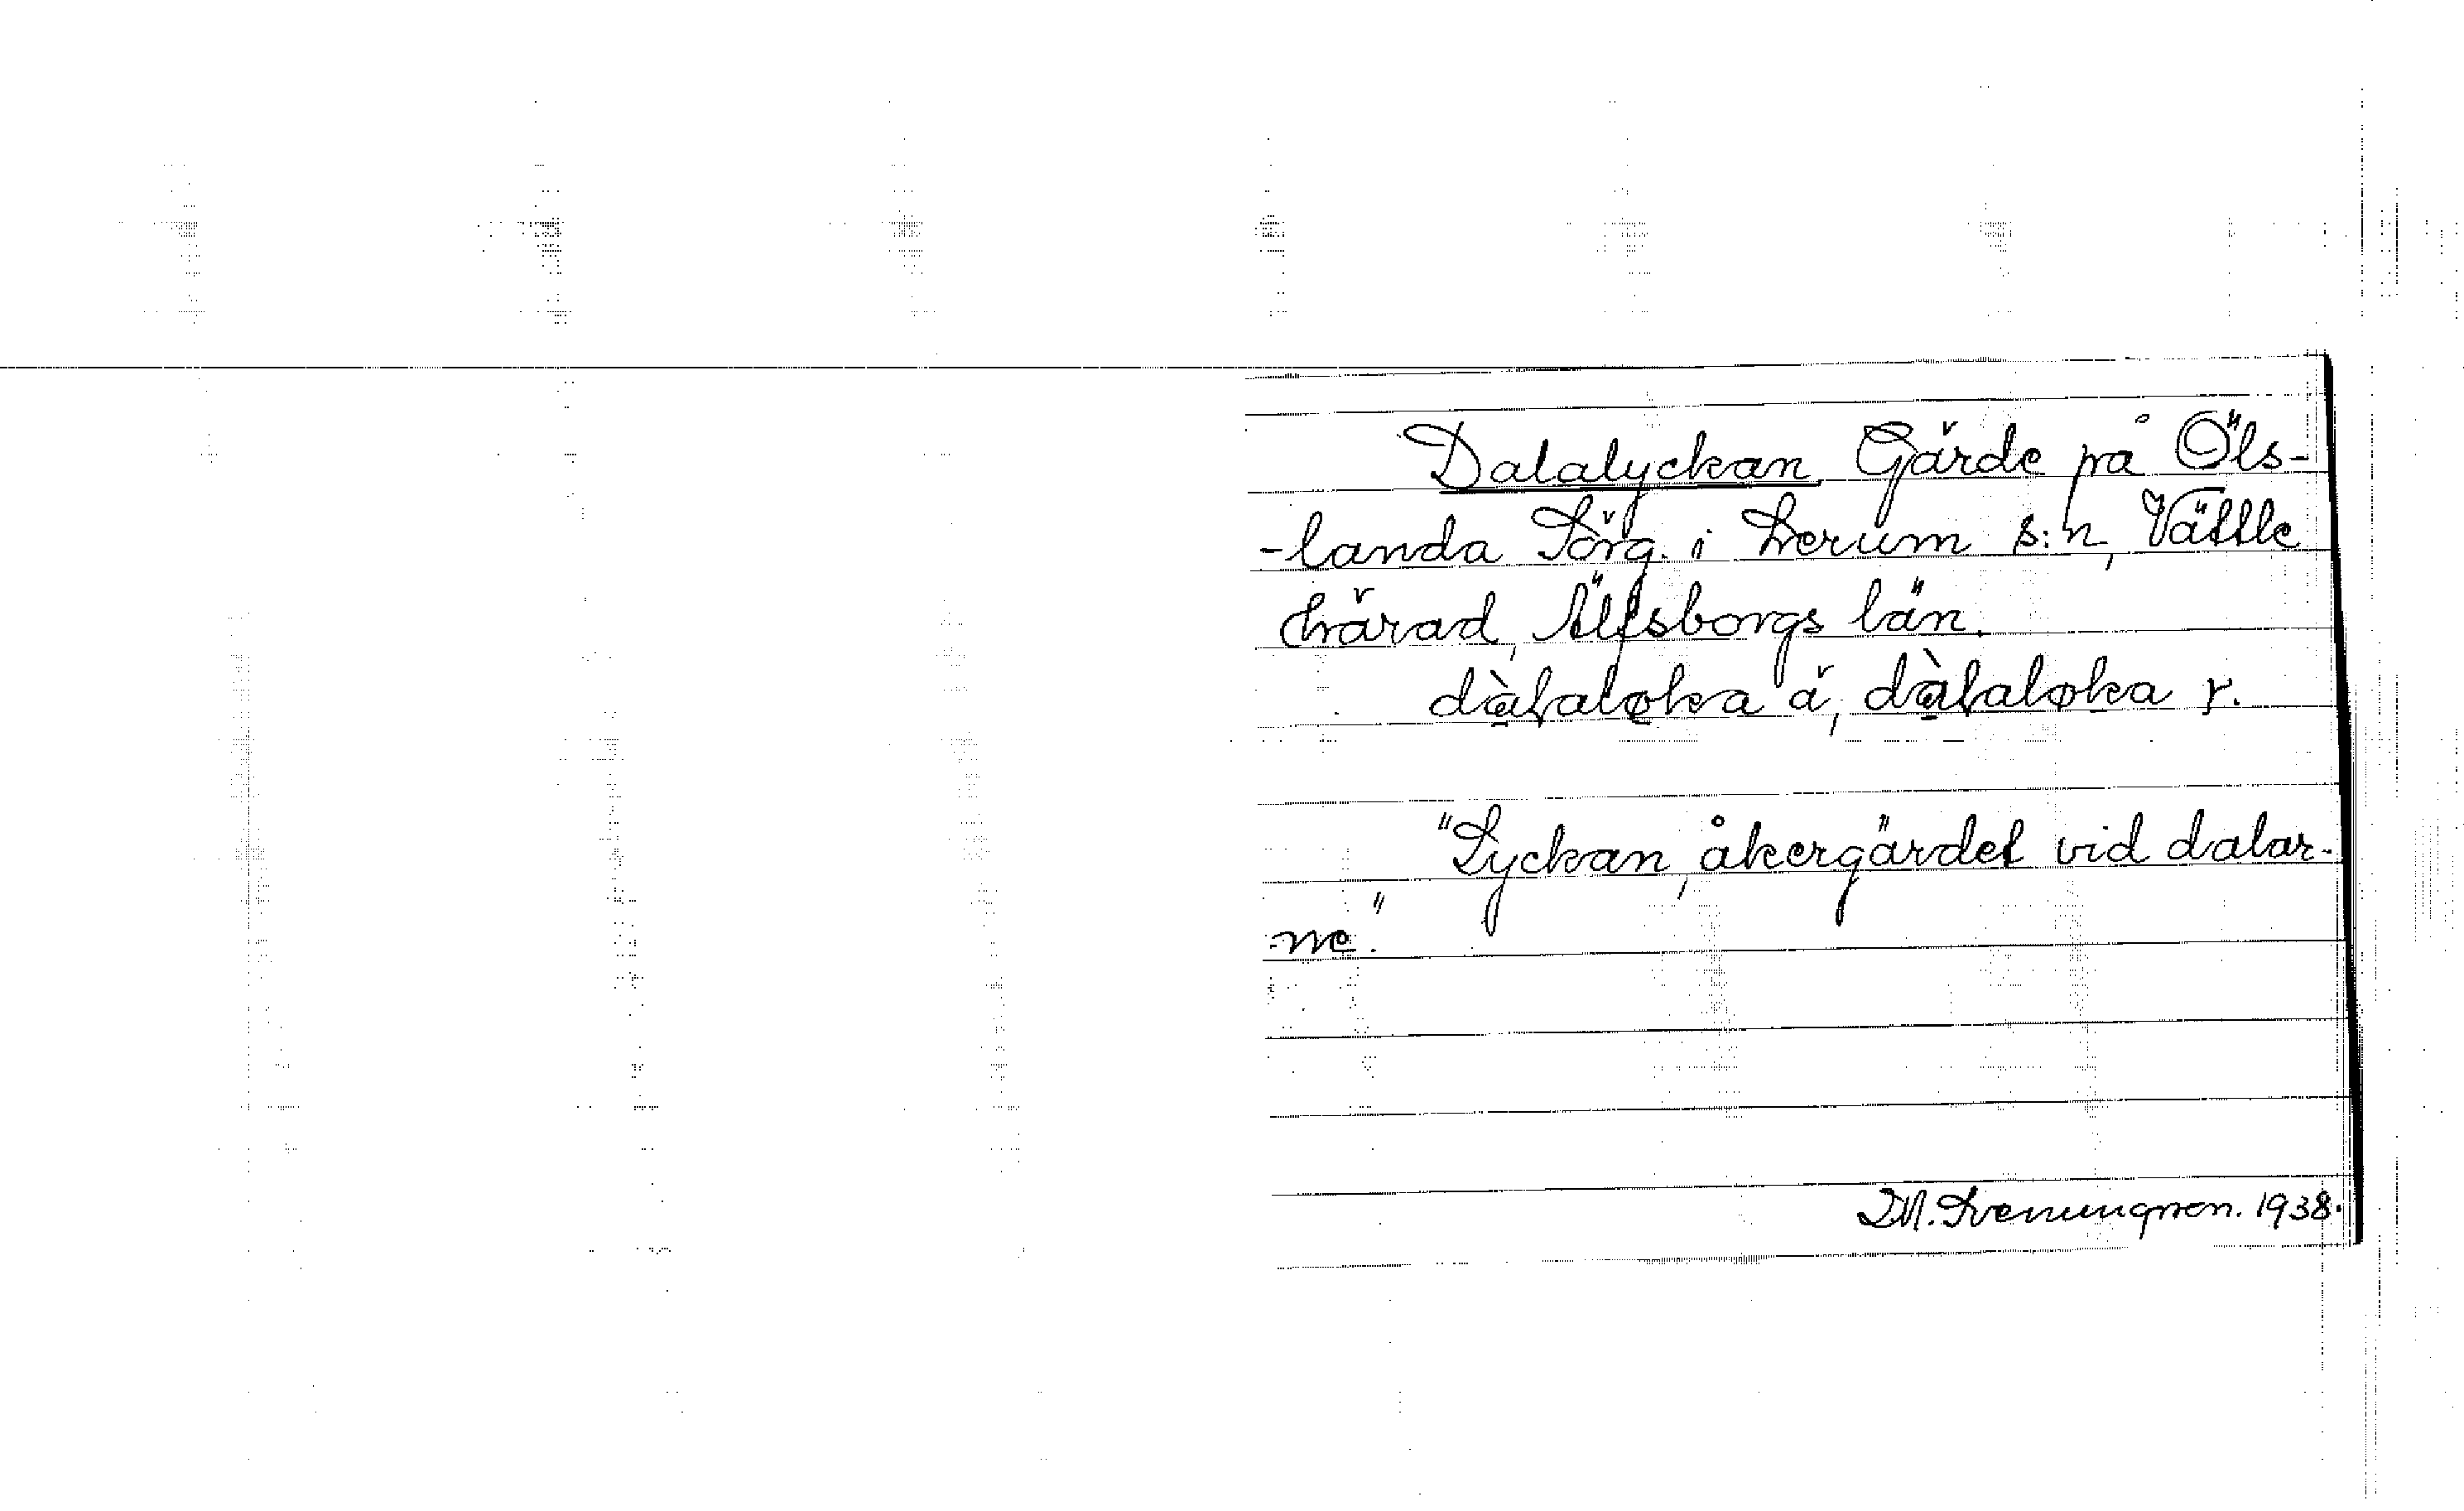 Dalalyckan Gärde på Öls-
-landa Sörg. i Lerum s:n, Vättle
härad, Älfsborgs län.
dàlaløka ä, dàlaløka r.
"Lyckan, åkergärdet vid dalar-
-ne."
I.M. Svenungson. 1938.